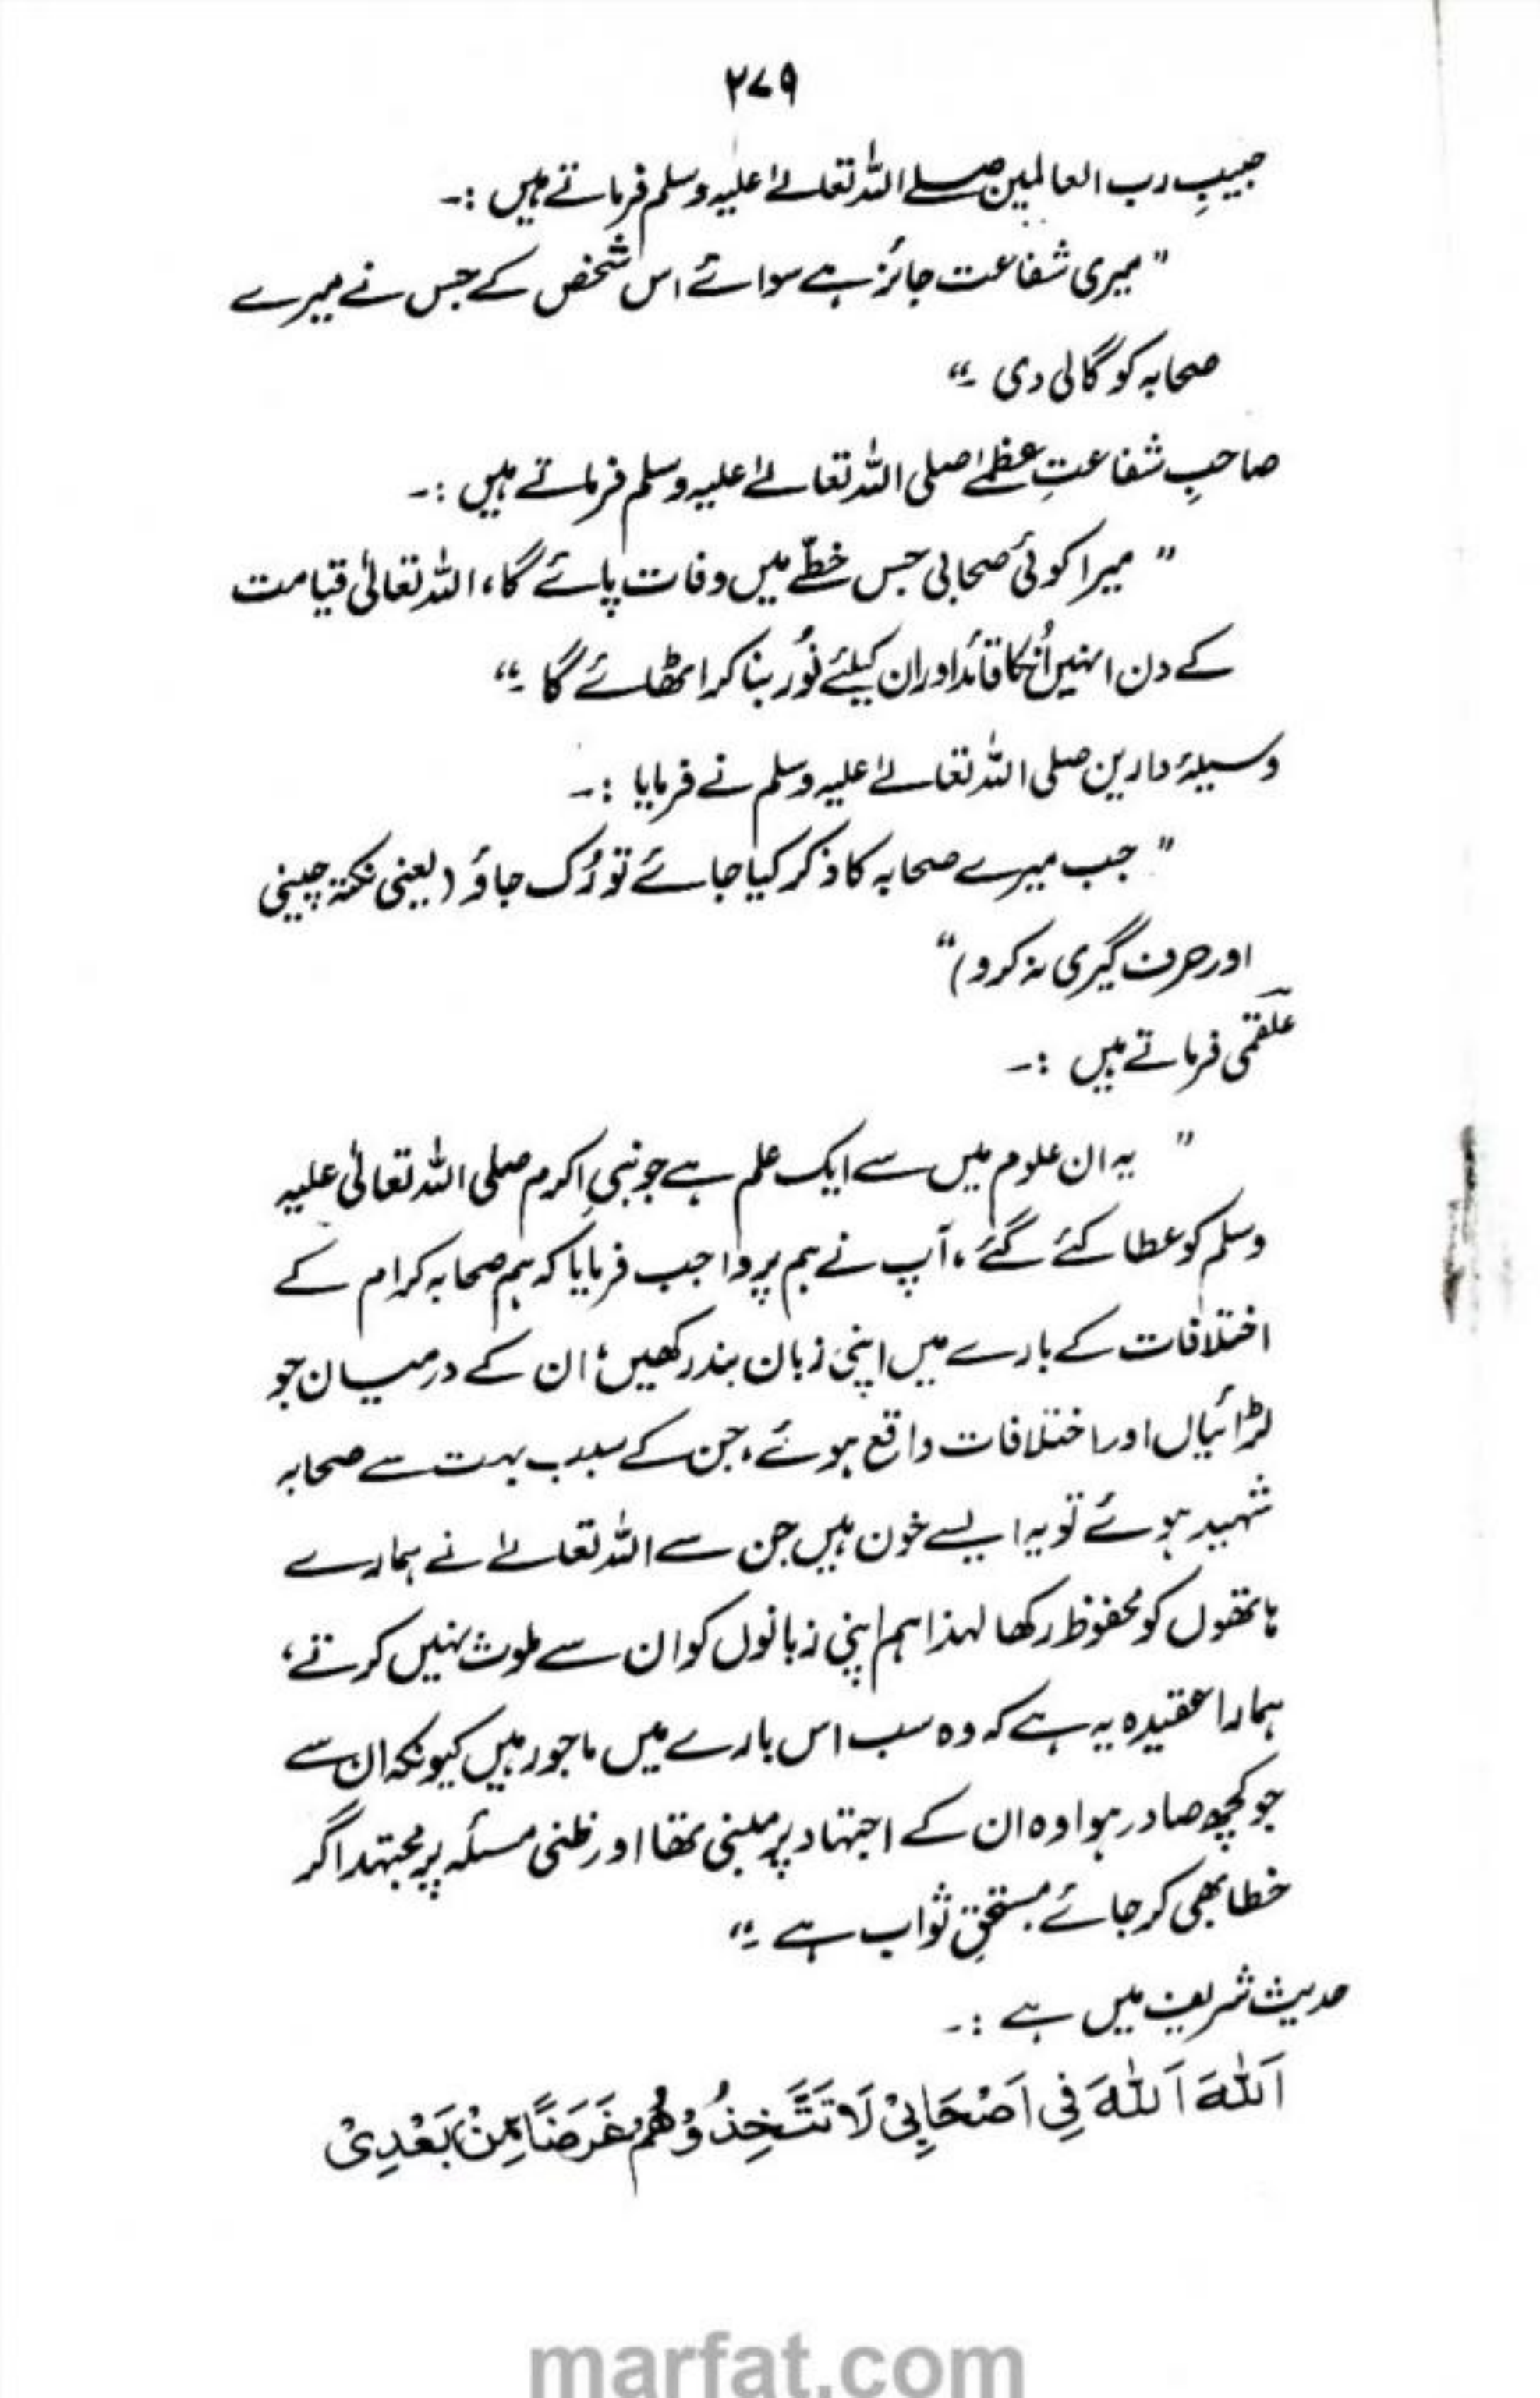 ۲۷۹
حبیبِ رب العالمین صلے اللہ تعالےٰ علیہ وسلم فرماتے ہیں :۔
” میری شفاعت جائز ہے سوائے اس شخص کے جس نے میرے
صحابہ کو گالی دی ۔“
صاحبِ شفاعتِ عظمےٰ صلی اللہ تعالےٰ علیہ وسلم فرماتے ہیں :۔
” میرا کوئی صحابی جس خطّے میں وفات پائے گا، اللہ تعالیٰ قیامت
کے دن انہیں اُن کا قائد اور ان کیلئے نُور بنا کر اٹھائے گا ۔“
وسیلۂ دارین صلی اللہ تعالےٰ علیہ وسلم نے فرمایا :۔
” جب میرے صحابہ کا ذکر کیا جائے تو رُک جاؤ (یعنی نکتہ چینی
اور حرف گیری نہ کرو)“
علقمی فرماتے ہیں :۔
” یہ ان علوم میں سے ایک علم ہے جو نبیِ اکرم صلی اللہ تعالیٰ علیہ
وسلم کو عطا کئے گئے ، آپ نے ہم پر واجب فرمایا کہ ہم صحابہ کرام کے
اختلافات کے بارے میں اپنی زبان بند رکھیں ؛ ان کے درمیان جو
لڑائیاں اور اختلافات واقع ہوئے ، جن کے سبب بہت سے صحابہ
شہید ہوئے تو یہ ایسے خون ہیں جن سے اللہ تعالےٰ نے ہمارے
ہاتھوں کو محفوظ رکھا لہذا ہم اپنی زبانوں کو ان سے ملوث نہیں کرتے ،
ہمارا عقیدہ یہ ہے کہ وہ سب اس بارے میں ماجور ہیں کیونکہ ان سے
جو کچھ صادر ہوا وہ ان کے اجتہاد پر مبنی تھا اور ظنی مسئلہ پر مجتہد اگر
خطا بھی کر جائے مستحقِ ثواب ہے ۔“
حدیث شریف میں ہے :۔
اَللّٰهَ اَللّٰهَ فِی اَصْحَابِیْ لَا تَتَّخِذُوْهُمْ غَرَضًا مِّنْ بَعْدِیْ
marfat.com